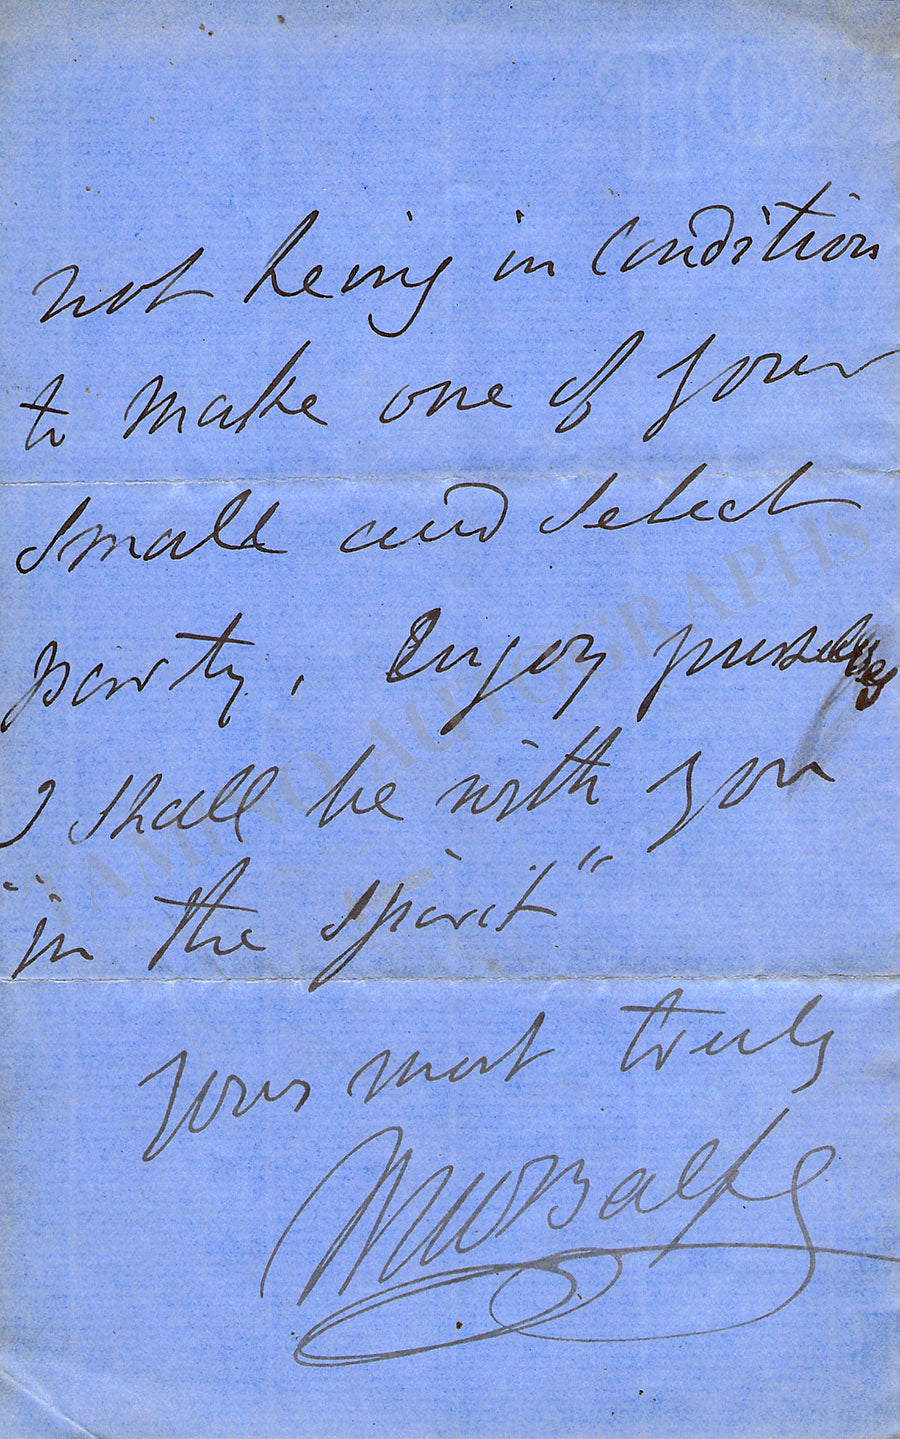 not being in condition
to make one of your
small and select
party, Enjoy yourselves
I shall be with you
"in the spirit"
Yours most truly
MWBalfe
TAMINO AUTOGRAPHS